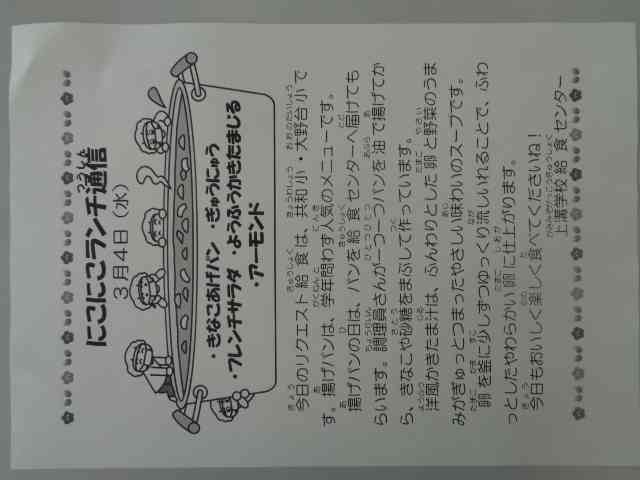 にこにこランチ通信
３月４日（水）
・きなこあげパン ・ぎゅうにゅう
・フレンチサラダ ・ようふうかきたまじる
・アーモンド
今日のリクエスト給食は、共和小・大野台小で
す。揚げパンは、学年問わず人気のメニューです。
揚げパンの日は、パンを給食センターへ届けても
らいます。調理員さんが一つ一つパンを油で揚げてか
ら、きなこや砂糖をまぶして作っています。
洋風かきたま汁は、ふんわりとした卵と野菜のうま
みがぎゅっとつまったやさしい味わいのスープです。
卵を釜に少しずつゆっくり流しいれることで、ふわ
っとしたやわらかい卵に仕上がります。
今日もおいしく楽しく食べてくださいね！
上溝学校給食センター